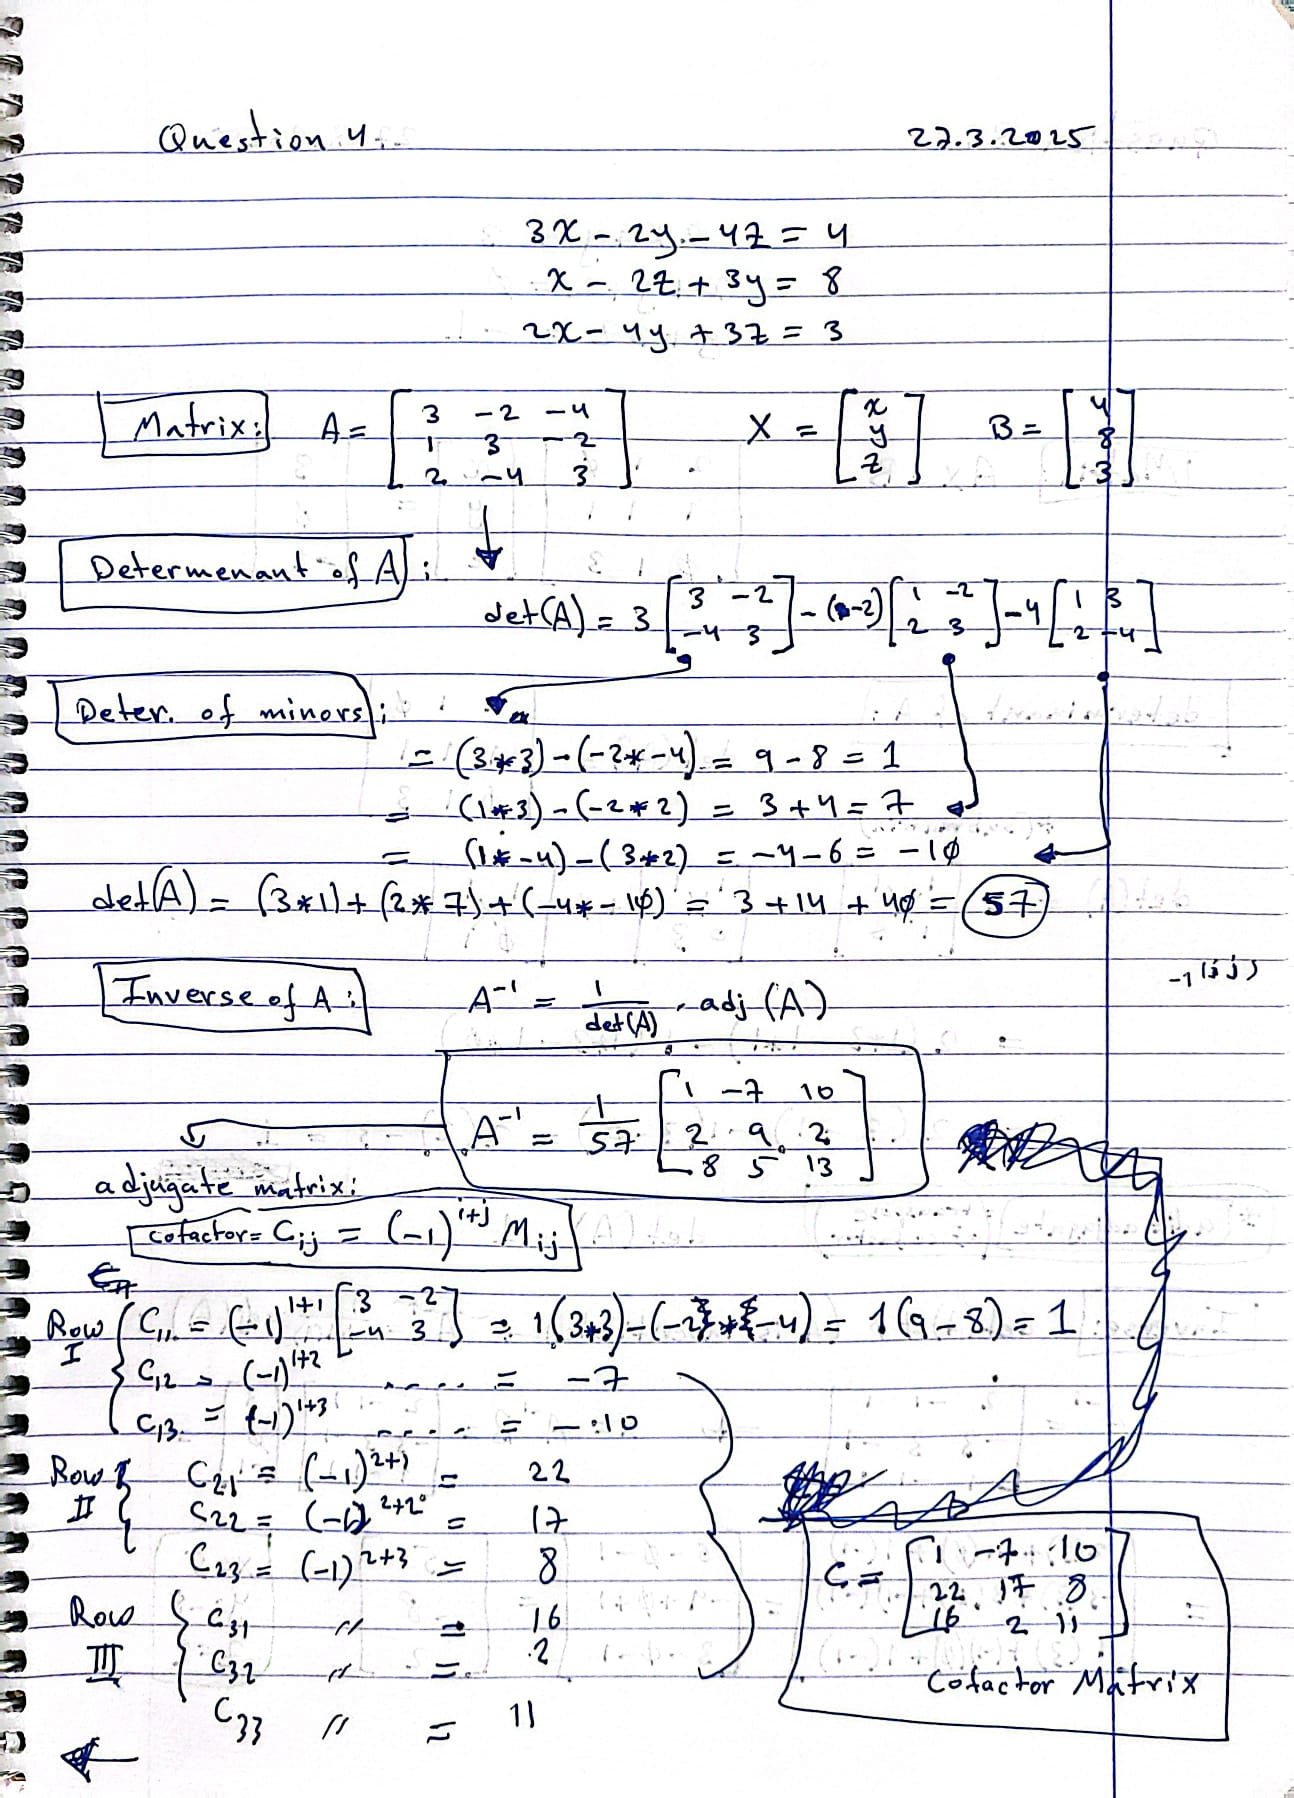 Question 4. 27.3.2025
3x - 2y - 4z = 4
x - 2z + 3y = 8
2x - 4y + 3z = 3
Matrix: A = [ 3 -2 -4 ; 1 3 -2 ; 2 -4 3 ] X = [ x ; y ; z ] B = [ 4 ; 8 ; 3 ]
Determenant of A :
det(A) = 3 [ 3 -2 ; -4 3 ] - (-2) [ 1 -2 ; 2 3 ] - 4 [ 1 3 ; 2 -4 ]
Deter. of minors :
= (3*3) - (-2*-4) = 9 - 8 = 1
= (1*3) - (-2*2) = 3 + 4 = 7
= (1*-4) - (3*2) = -4 - 6 = -10
det(A) = (3*1) + (2*7) + (-4*-10) = 3 + 14 + 40 = 57
Inverse of A : A⁻¹ = 1/det(A) . adj (A)
A⁻¹ = 1/57 [ 1 -7 10 ; 2 9 2 ; 8 5 13 ]
adjugate matrix:
cofactor = Cij = (-1)^i+j Mij
Row I C11 = (-1)^1+1 [ 3 -2 ; -4 3 ] = 1(3*3) - (-2*-4) = 1(9-8) = 1
C12 = (-1)^1+2 ..... = -7
C13 = (-1)^1+3 ..... = -10
Row II C21 = (-1)^2+1 = 22
C22 = (-1)^2+2 = 17
C23 = (-1)^2+3 = 8
Row III C31 〃 = 16
C32 〃 = 2
C33 〃 = 11
C = [ 1 -7 -10 ; 22 17 8 ; 16 2 11 ]
Cofactor Matrix